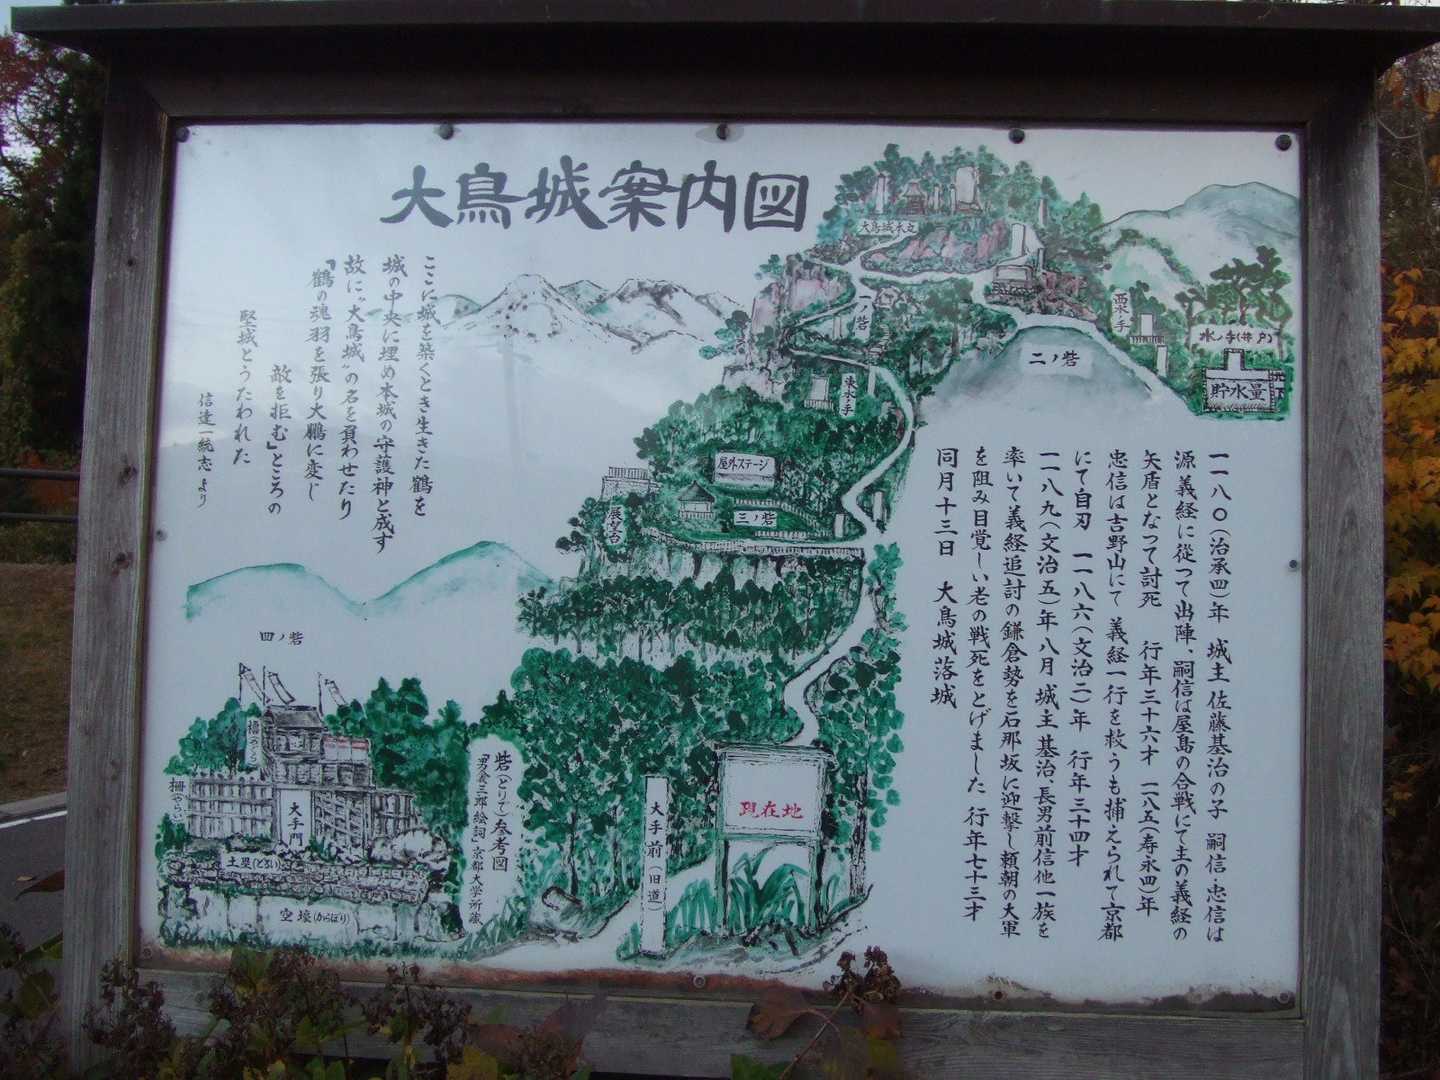 大鳥城案内図
ここに城を築くとき生きた鶴を
城の中央に埋め本城の守護神と成す
故に“大鳥城”の名を負わせたり
「鶴の魂羽を張り大鵬に変じ
故を拒む」ところの
堅城とうたわれた
信達一統志より
大鳥城本丸
一ノ砦
二ノ砦
栗ノ手
水ノ手(井戸)
貯水量
地下
東水ノ手
屋外ステージ
三ノ砦
展望台
一一八〇(治承四)年 城主 佐藤基治の子 嗣信・忠信は
源義経に従って出陣、嗣信は屋島の合戦にて主の義経の
矢盾となって討死 行年三十六才 一一八五(寿永四)年
忠信は吉野山にて義経一行を救うも捕えられて京都
にて自刃 一一八六(文治二)年 行年三十四才
一一八九(文治五)年八月 城主基治、長男前信他一族を
率いて義経追討の鎌倉勢を石那坂に迎撃し頼朝の大軍
を阻み目覚しい老の戦死をとげました 行年七十三才
同月十三日 大鳥城落城
四ノ砦
櫓(やぐら)
柵(やらい)
大手門
土塁(どるい)
空壕(からぼり)
砦(とりで)参考図
「男衾三郎絵詞」京都大学所蔵
大手前(旧道)
現在地